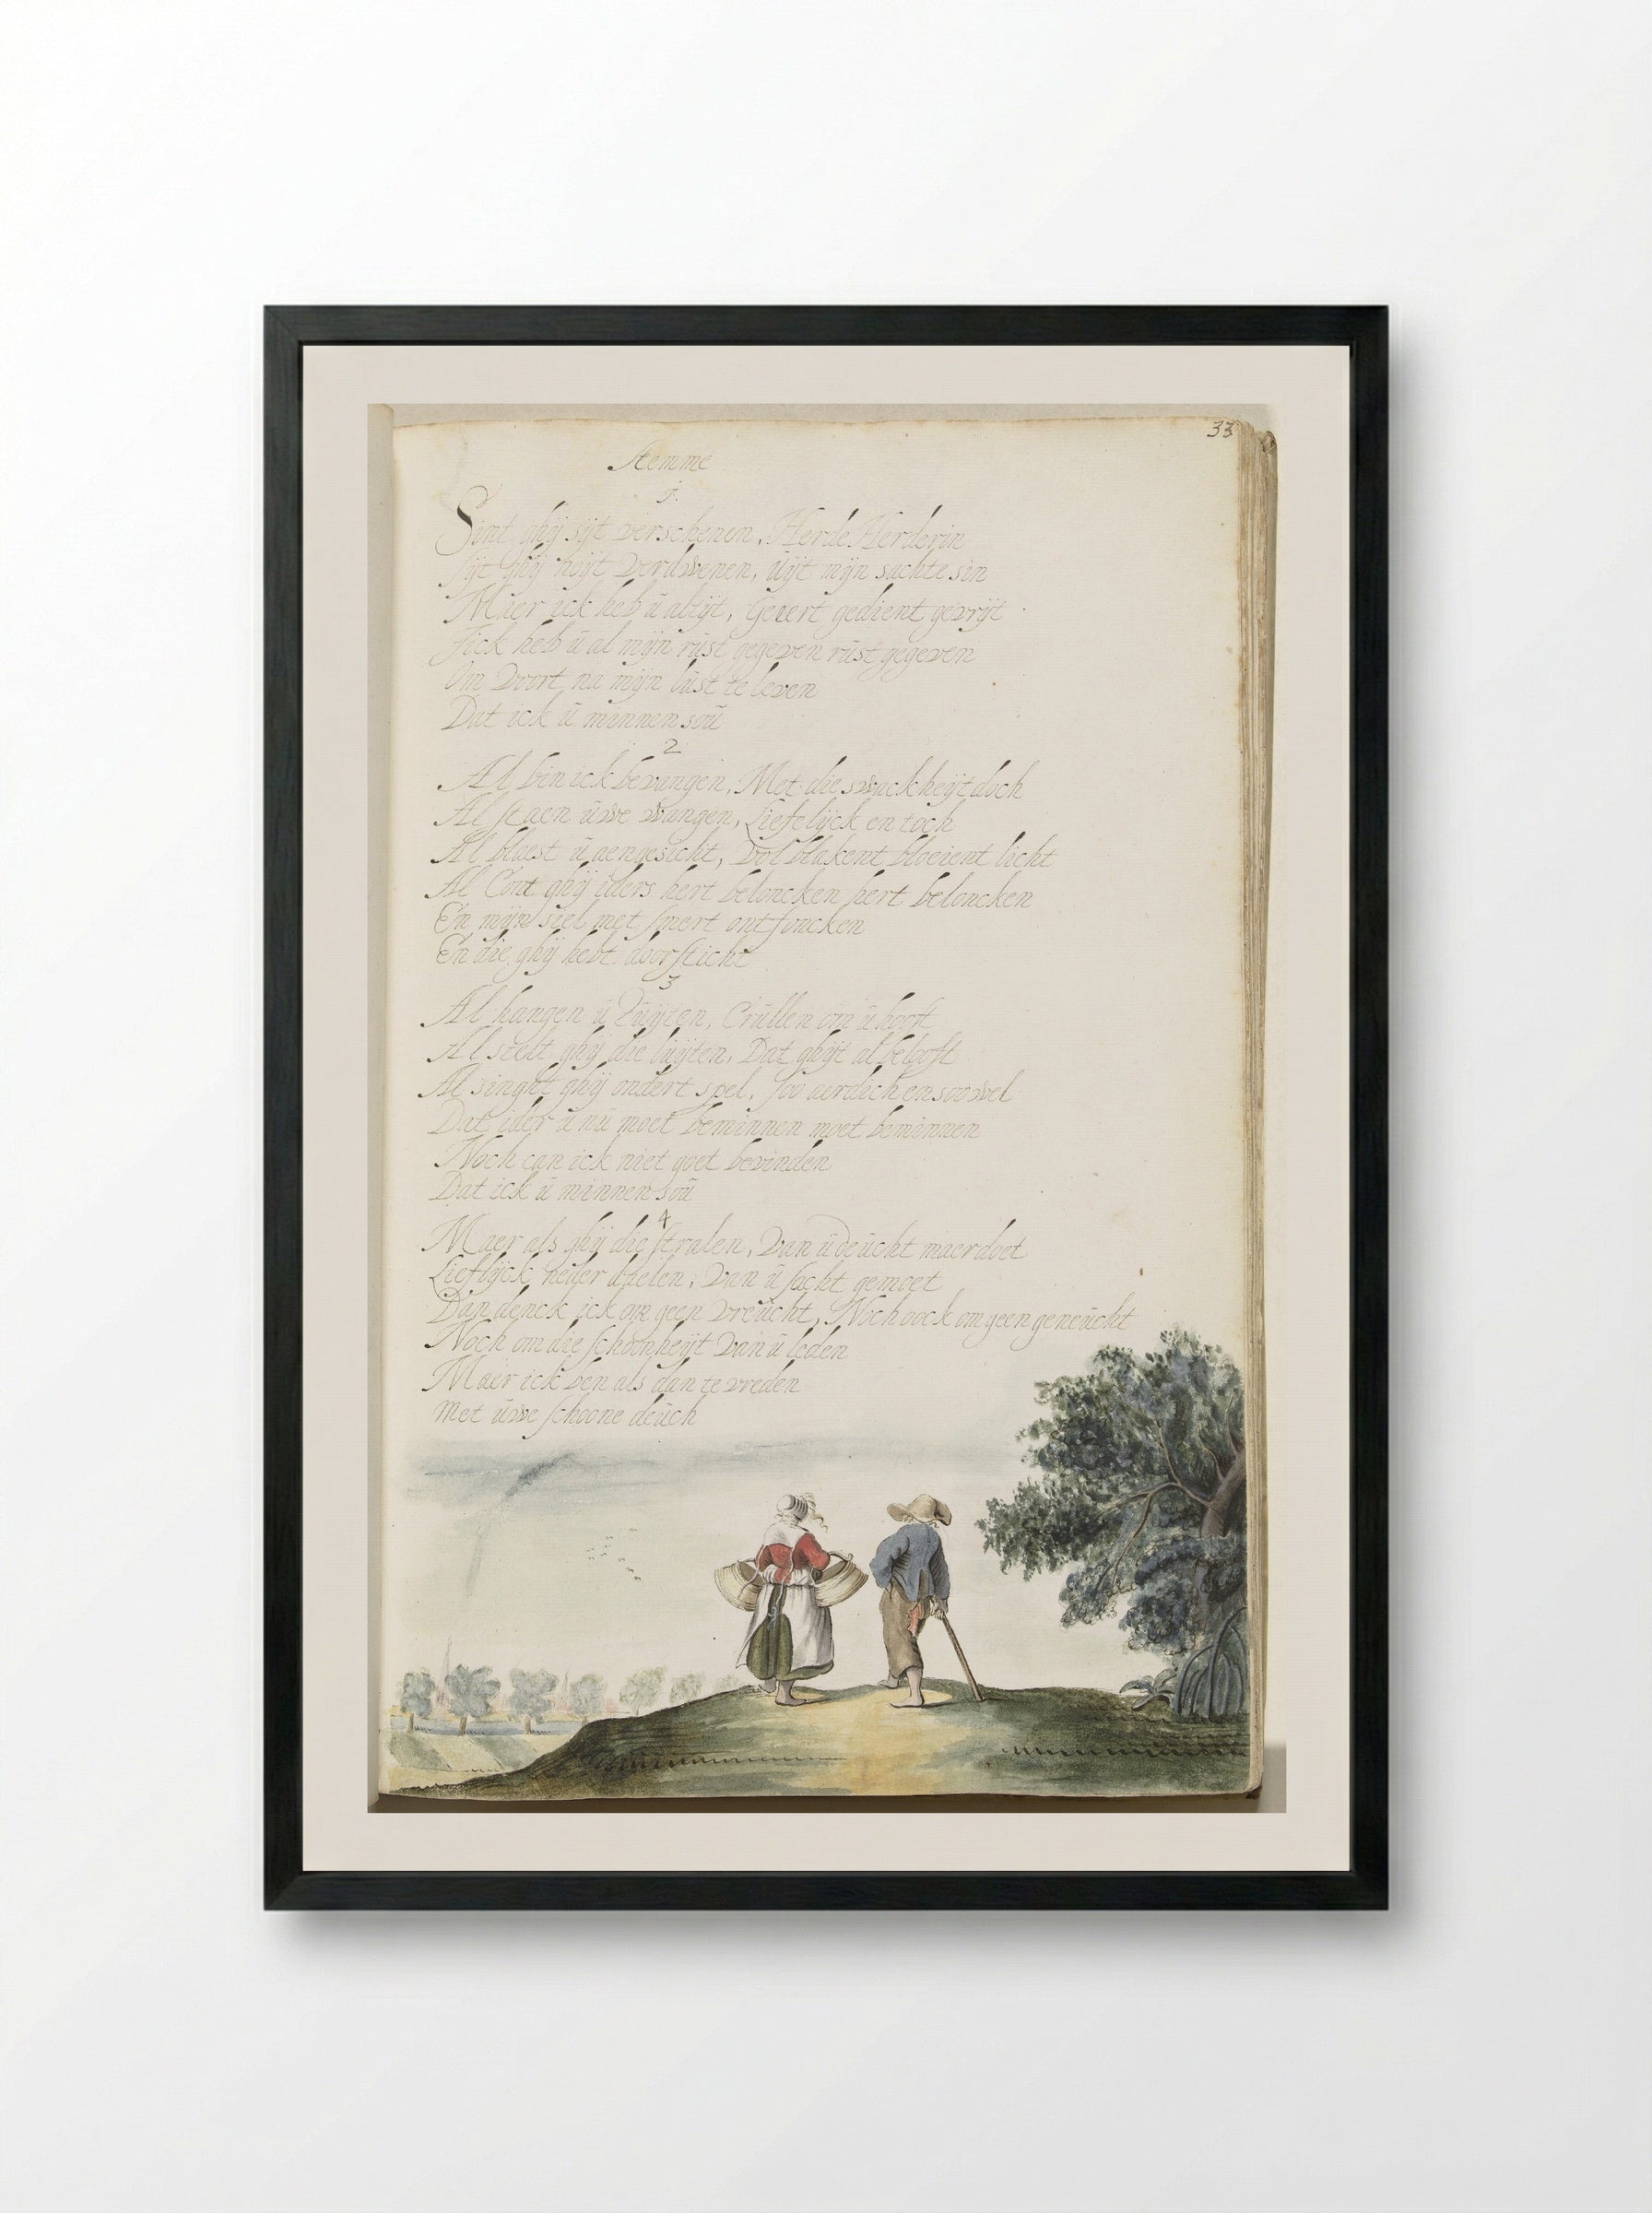 33
Stemme
1.
Sint ghij sijt verschenen, Herde Herderin
Sijt ghij noijt Verdwenen, uijt mijn sachte sin
Maer ick heb ü altijt, Geeert gedient gevrijt
Jick heb ü al mijn rüst gegeven rüst gegeven
Om Voort na mijn lüst te leven
Dat ick ü minnen soü
2
Al bin ick bevangen, Met die swackheijt doch
Al staen üwe wangen, Liefelijck en toch
Al blaest ü aengesicht, Vol blakent bloeient licht
Al Cont ghij iders hert beloncken hert beloncken
En mijn siel met smert ontfoncken
En die ghij hebt doorsticht
3
Al hangen ü Tüijten, Crüllen om ü hooft
Al stelt ghij die lüijten, Dat ghijt al belooft
Al singht ghij ondert spel, soo aerdich en soo wel
Dat ider ü nü moet beminnen moet beminnen
Noch can ick niet goet bevinden
Dat ick ü minnen soü
4
Maer als ghij die stralen, Van ü deücht maer doet
Lieflijck neder daelen, Van ü sacht gemoet
Dan denck ick om geen vreücht, Noch oock om geen geneücht
Noch om die schoonheijt Van ü leden
Maer ick ben als dan te vreden
Met üwe schoone deüch